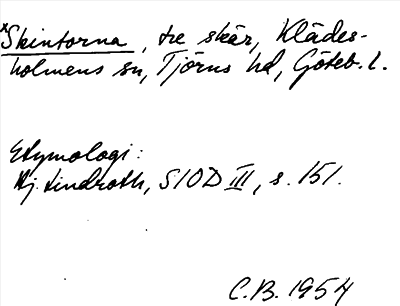 ×Skintorna, tre skär, Klädes-
holmens sn, Tjörns hd, Göteb. l.
Etymologi:
Hj. Lindroth, SIOD III, s. 151.
C.B. 1954